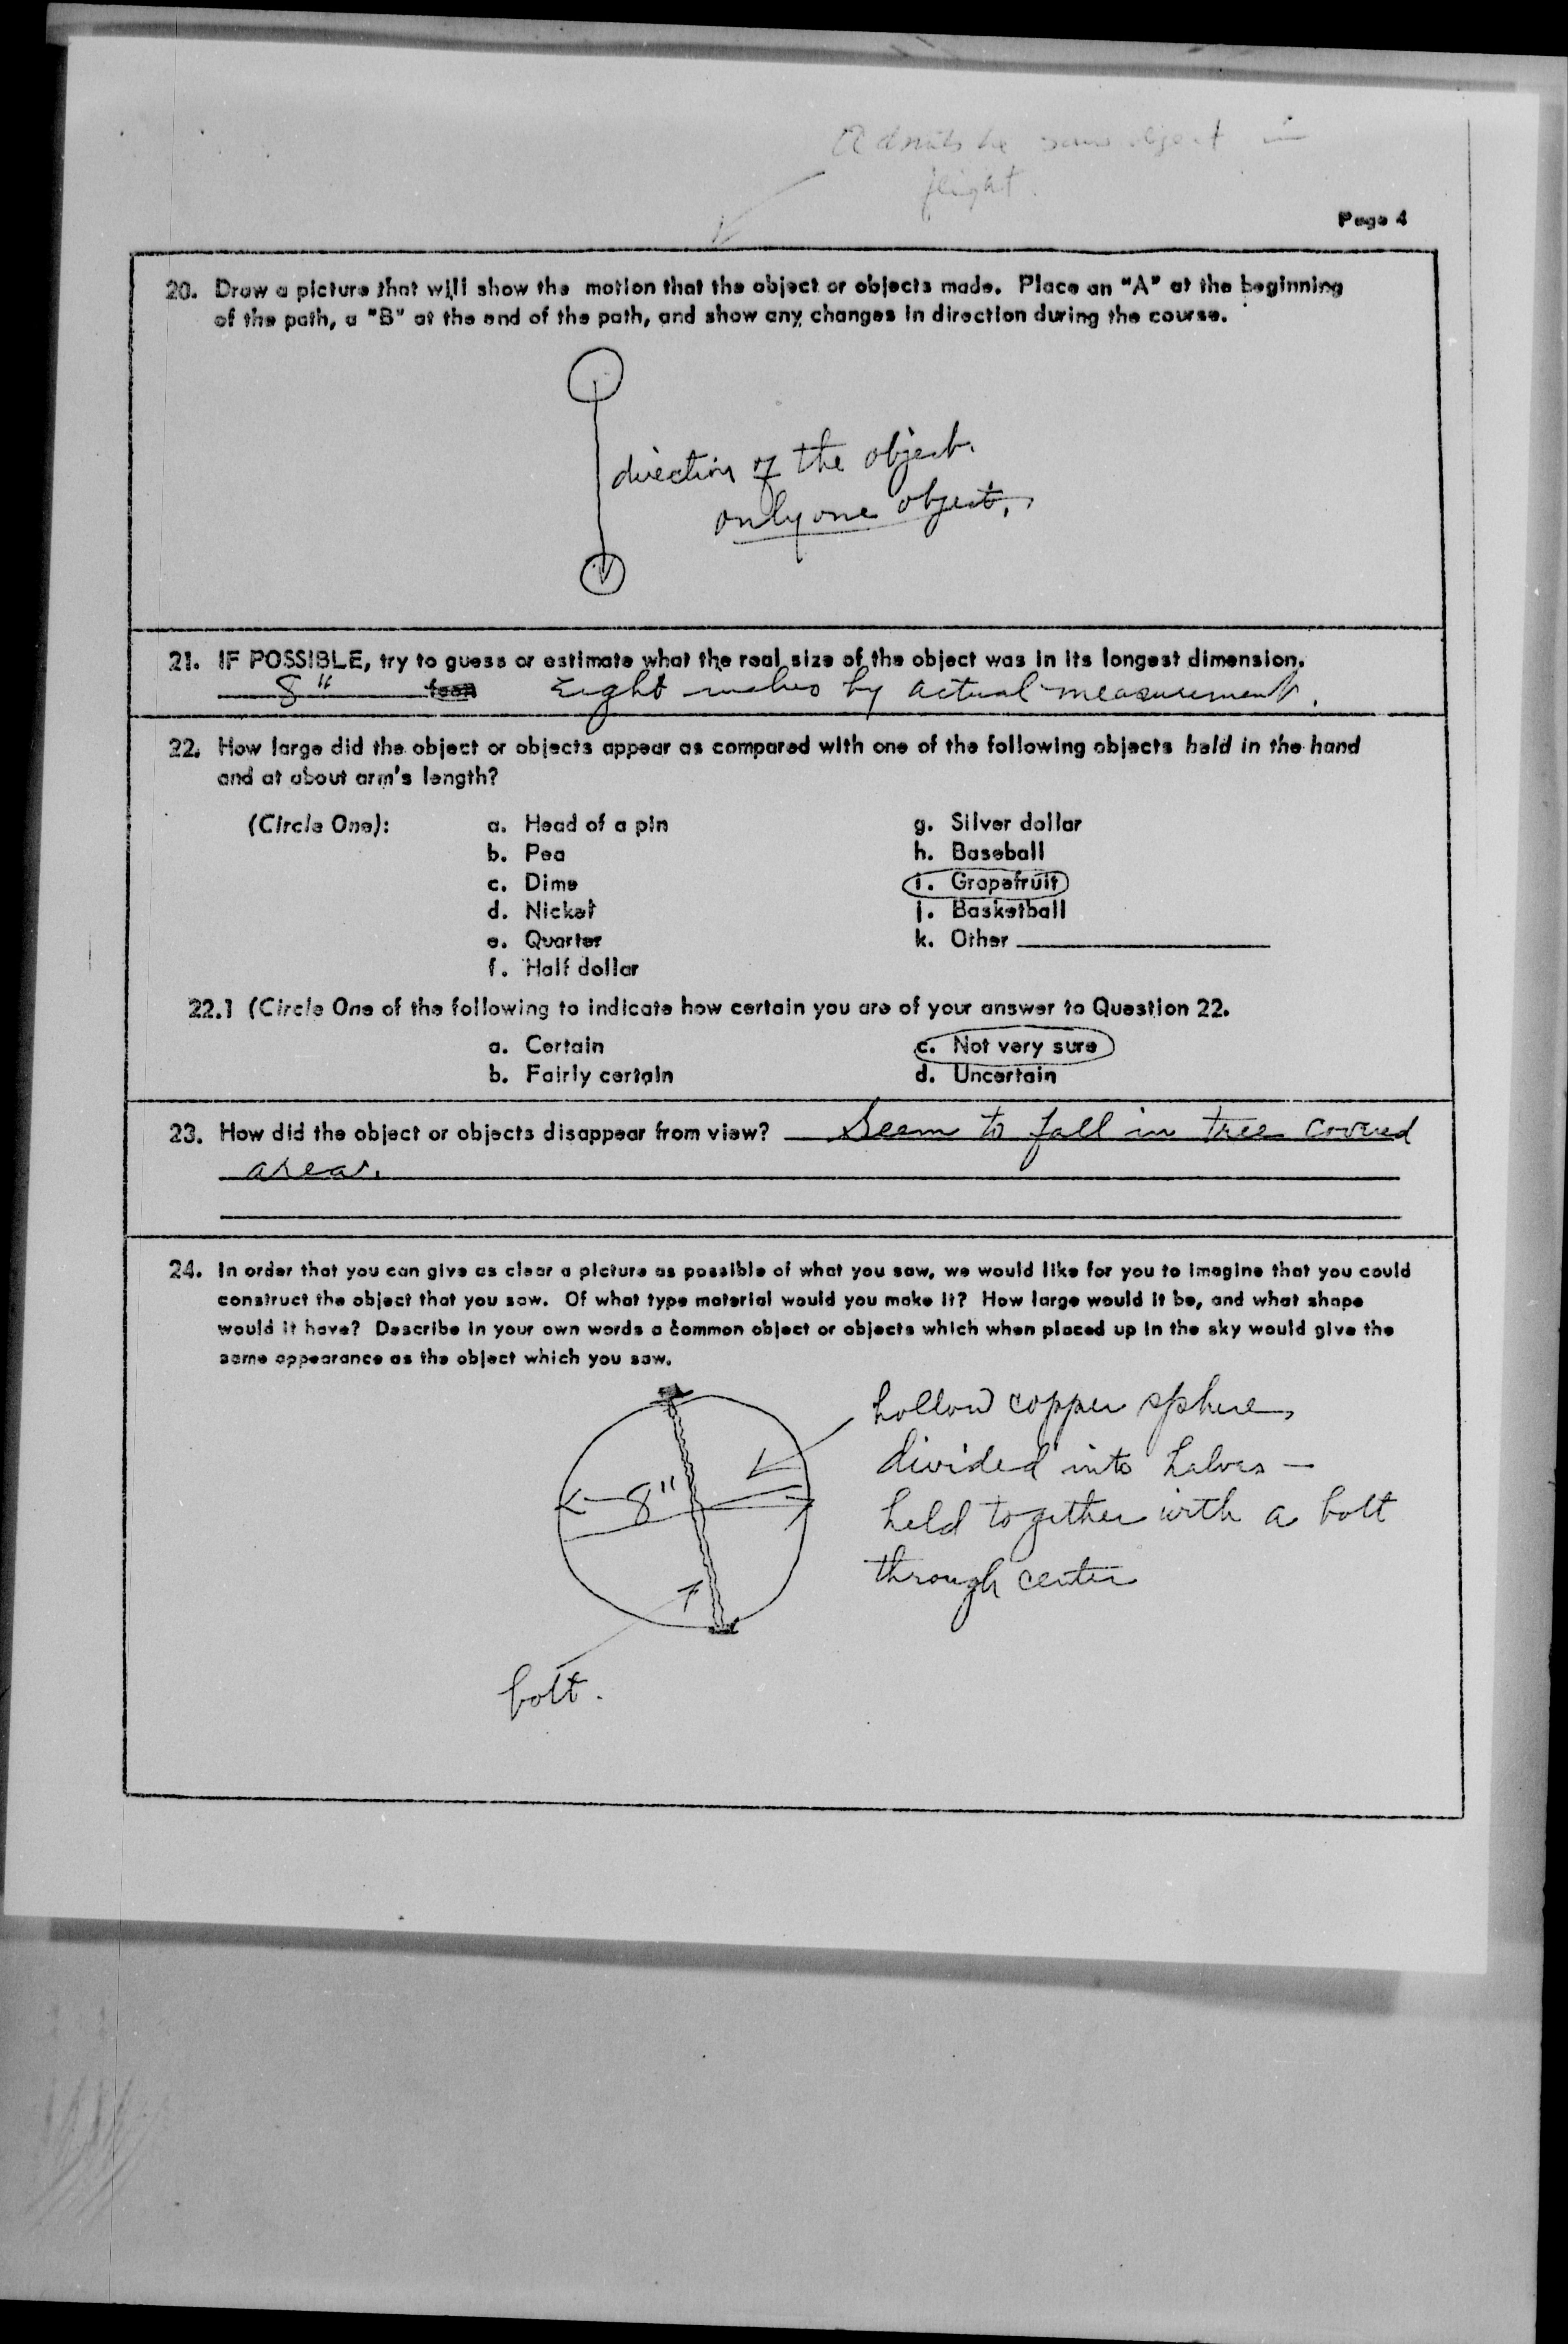 Admits he saw object in
flight.
Page 4
20. Draw a picture that will show the motion that the object or objects made. Place an "A" at the beginning
of the path, a "B" at the end of the path, and show any changes in direction during the course.
direction of the object.
only one object.
21. IF POSSIBLE, try to guess or estimate what the real size of the object was in its longest dimension.
8" feet Eight inches by actual measurement.
22. How large did the object or objects appear as compared with one of the following objects held in the hand
and at about arm's length?
(Circle One): a. Head of a pin g. Silver dollar
b. Pea h. Baseball
c. Dime i. Grapefruit
d. Nickel j. Basketball
e. Quarter k. Other
f. Half dollar
22.1 (Circle One of the following to indicate how certain you are of your answer to Question 22.
a. Certain c. Not very sure
b. Fairly certain d. Uncertain
23. How did the object or objects disappear from view? Seem to fall in tree covered
area.
24. In order that you can give as clear a picture as possible of what you saw, we would like for you to imagine that you could
construct the object that you saw. Of what type material would you make it? How large would it be, and what shape
would it have? Describe in your own words a common object or objects which when placed up in the sky would give the
same appearance as the object which you saw.
hollow copper sphere,
divided into halves -
8"
held together with a bolt
through center
bolt.